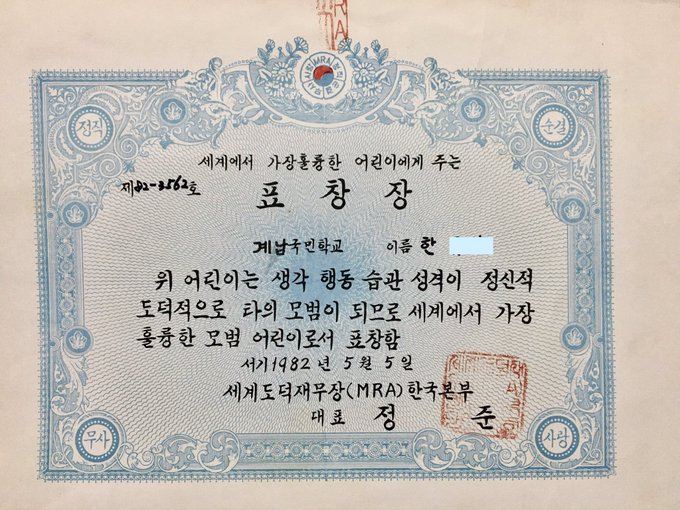 MRA
정직
순결
세계에서 가장훌륭한 어린이에게 주는
제82-3562호
표창장
계남국민학교 이름 한
위 어린이는 생각 행동 습관 성격이 정신적
도덕적으로 타의 모범이 되므로 세계에서 가장
훌륭한 모범 어린이로서 표창함
서기1982년 5월 5일
세계도덕재무장(MRA)한국본부
대표 정 준
무사
사랑